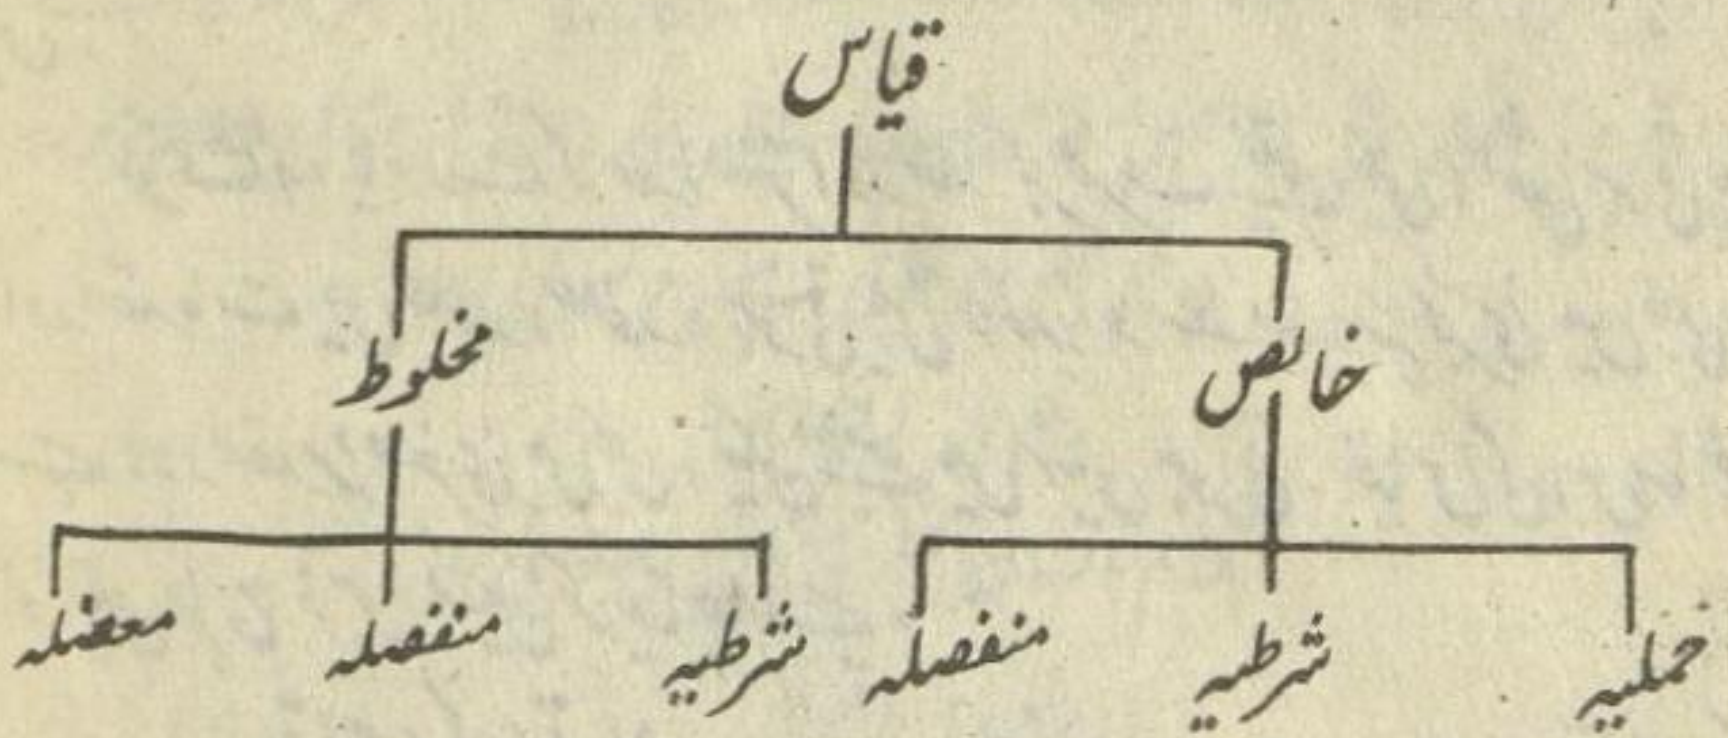 قیاس
خالص مخلوط
خملیہ شرطیہ منفصلہ شرطیہ منفصلہ معضلہ